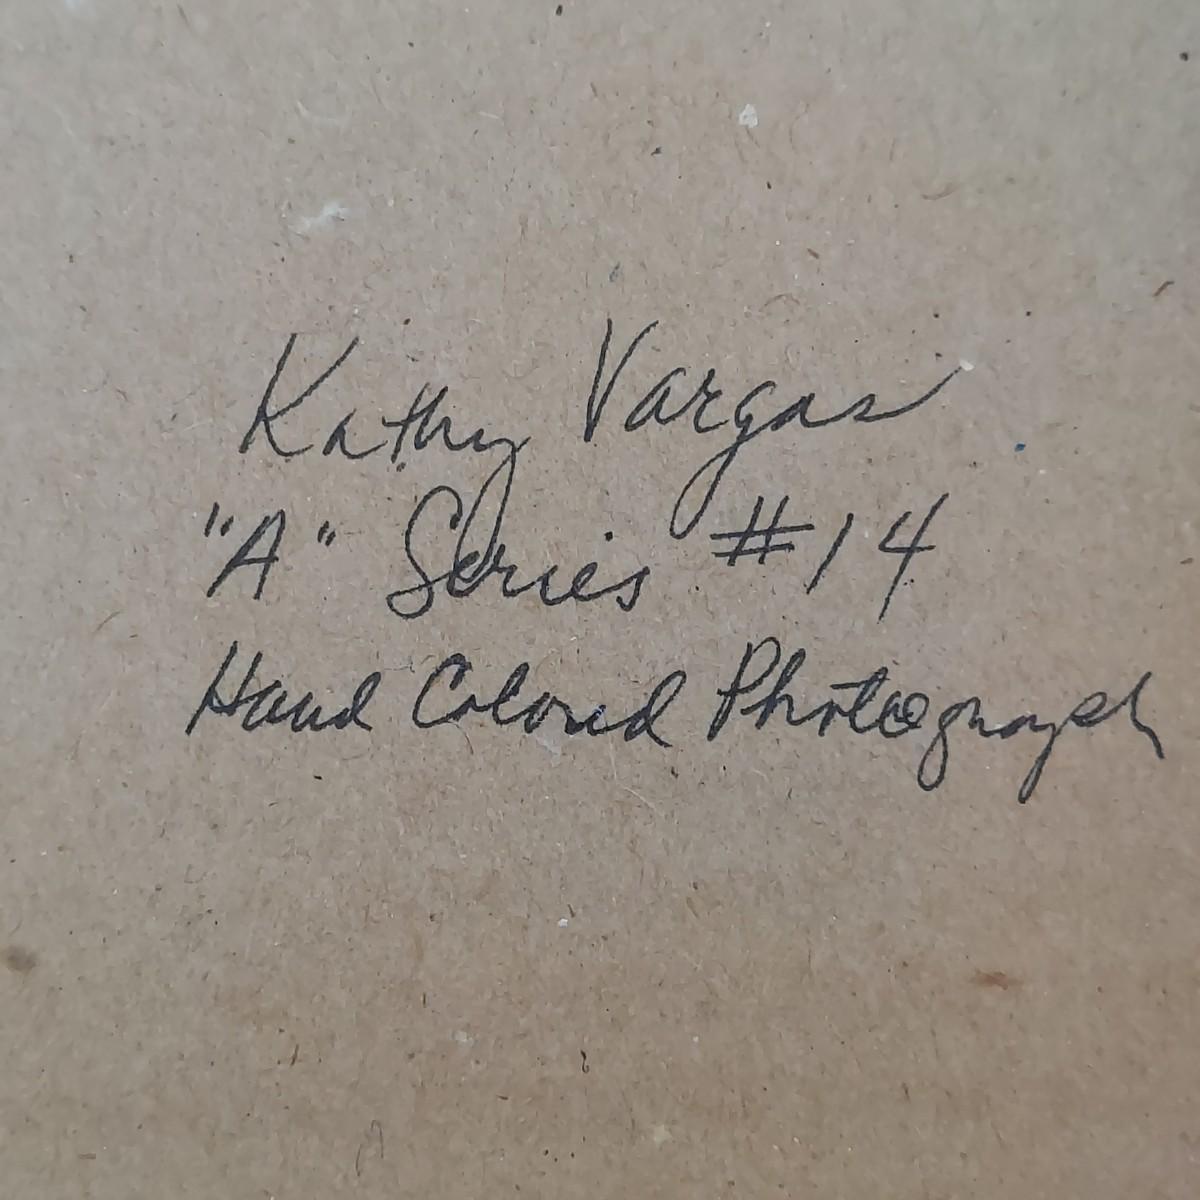 Kathy Vargas
"A" Series #14
Hand Colored Photograph